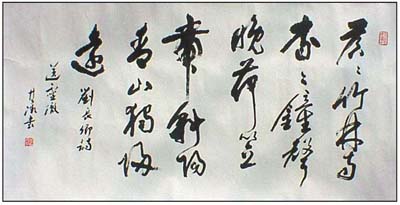 蒼々竹林寺
杳々鐘聲
晚荷笠
帶斜陽
青山獨歸
遠
劉長卿詩
送靈澈